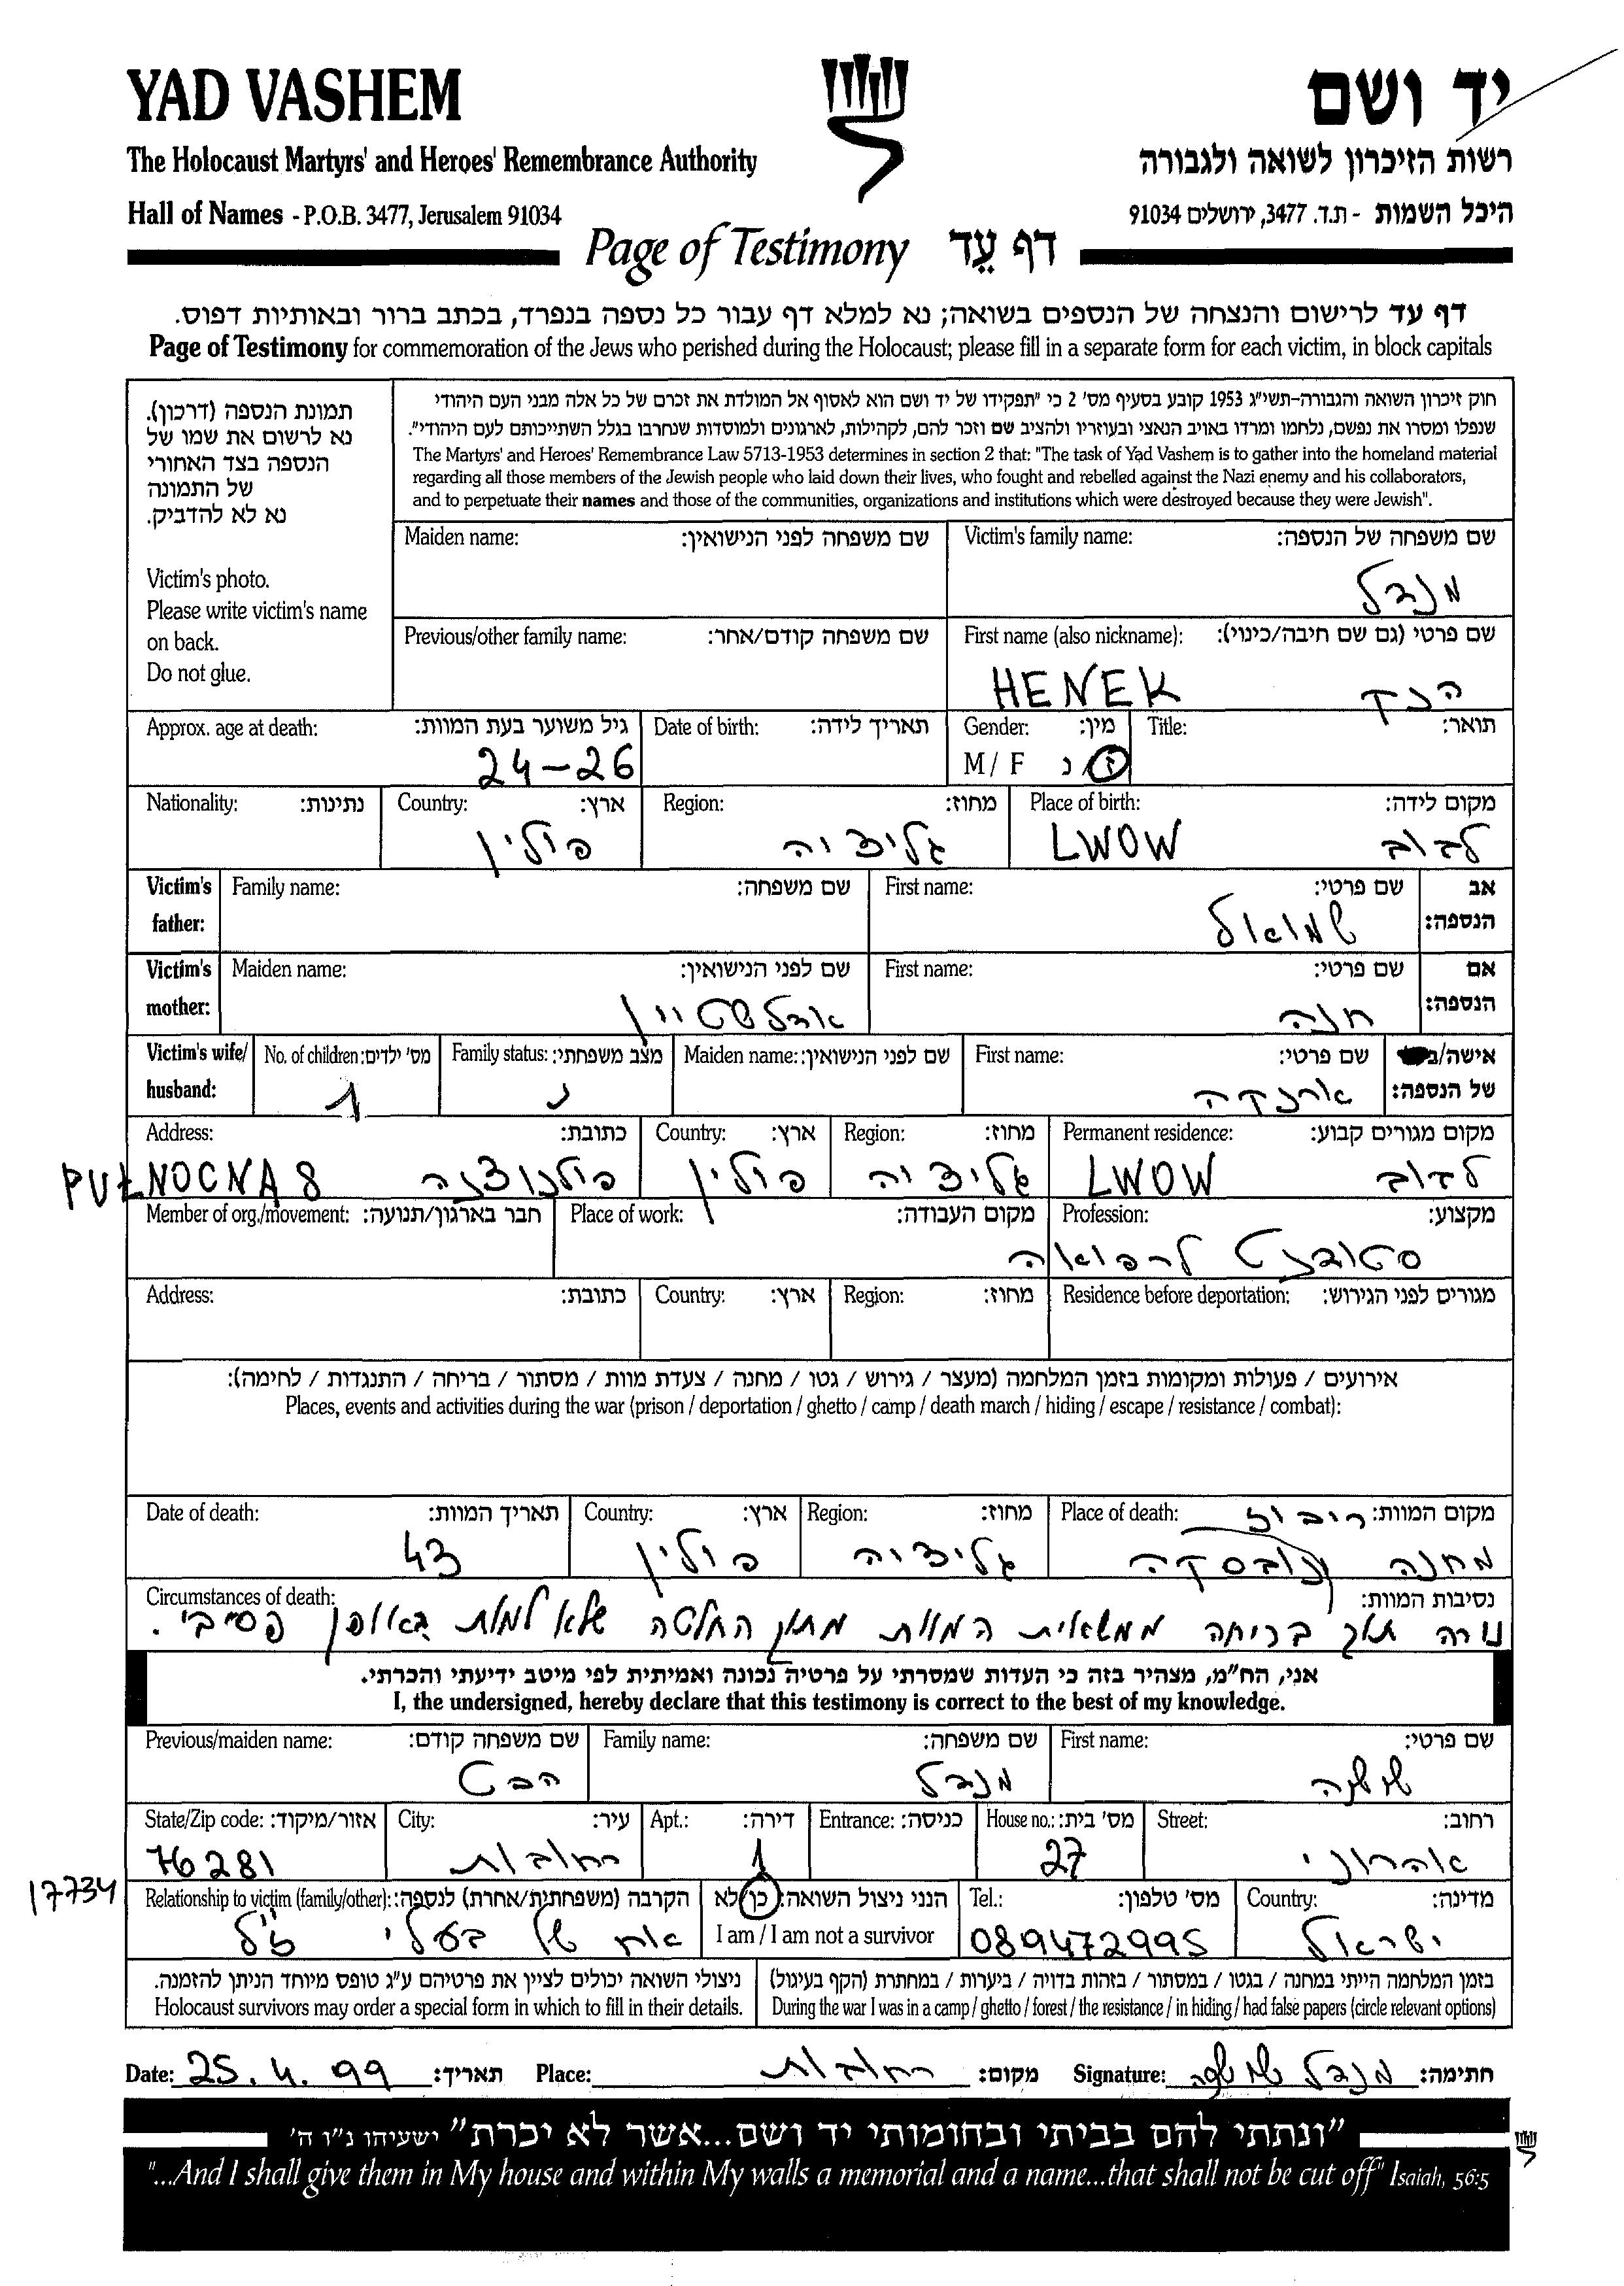 YAD VASHEM
יד ושם
The Holocaust Martyrs' and Heroes' Remembrance Authority
רשות הזיכרון לשואה ולגבורה
Hall of Names - P.O.B. 3477, Jerusalem 91034
היכל השמות - ת.ד. 3477, ירושלים 91034
Page of Testimony דף עֵד
דף עד לרישום והנצחה של הנספים בשואה; נא למלא דף עבור כל נספה בנפרד, בכתב ברור ובאותיות דפוס.
Page of Testimony for commemoration of the Jews who perished during the Holocaust; please fill in a separate form for each victim, in block capitals
תמונת הנספה (דרכון).
נא לרשום את שמו של
הנספה בצד האחורי
של התמונה
נא לא להדביק.
Victim's photo.
Please write victim's name
on back.
Do not glue.
חוק זיכרון השואה והגבורה-תשי"ג 1953 קובע בסעיף מס' 2 כי "תפקידו של יד ושם הוא לאסוף אל המולדת את זכרם של כל אלה מבני העם היהודי
שנפלו ומסרו את נפשם, נלחמו ומרדו באויב הנאצי ובעוזריו ולהציב שם וזכר להם, לקהילות, לארגונים ולמוסדות שנחרבו בגלל השתייכותם לעם היהודי".
The Martyrs' and Heroes' Remembrance Law 5713-1953 determines in section 2 that: "The task of Yad Vashem is to gather into the homeland material
regarding all those members of the Jewish people who laid down their lives, who fought and rebelled against the Nazi enemy and his collaborators,
and to perpetuate their names and those of the communities, organizations and institutions which were destroyed because they were Jewish".
Victim's family name: שם משפחה של הנספה:
מנדל
Maiden name: שם משפחה לפני הנישואין:
First name (also nickname): שם פרטי (גם שם חיבה/כינוי):
HENEK הנק
Previous/other family name: שם משפחה קודם/אחר:
Title: תואר:
Gender: מין:
M / F ז/נ
Date of birth: תאריך לידה:
Approx. age at death: גיל משוער בעת המוות:
24-26
Place of birth: מקום לידה:
LWOW לבוב
Region: מחוז:
גליציה
Country: ארץ:
פולין
Nationality: נתינות:
Victim's father: אב הנספה:
First name: שם פרטי:
שמואל
Family name: שם משפחה:
Victim's mother: אם הנספה:
First name: שם פרטי:
חנה
Maiden name: שם לפני הנישואין:
אדלשטיין
Victim's wife/ husband: אישה/ב של הנספה:
First name: שם פרטי:
Maiden name: שם לפני הנישואין:
Family status: מצב משפחתי:
נ
No. of children: מס' ילדים:
1
Permanent residence: מקום מגורים קבוע:
LWOW לבוב
Region: מחוז:
גליציה
Country: ארץ:
פולין
Address: כתובת:
PUŁNOCNA 8 פולנוצנה
Profession: מקצוע:
סטודנט לרפואה
Place of work: מקום העבודה:
Member of org./movement: חבר בארגון/תנועה:
Residence before deportation: מגורים לפני הגירוש:
Region: מחוז:
Country: ארץ:
Address: כתובת:
אירועים / פעולות ומקומות בזמן המלחמה (מעצר / גירוש / גטו / מחנה / צעדת מוות / מסתור / בריחה / התנגדות / לחימה):
Places, events and activities during the war (prison / deportation / ghetto / camp / death march / hiding / escape / resistance / combat):
Place of death: מקום המוות:
מחנה ינובסקה
Region: מחוז:
גליציה
Country: ארץ:
פולין
Date of death: תאריך המוות:
43
Circumstances of death: נסיבות המוות:
נורה תוך בריחה ממשאית המוות מתוך החלטה שלא למות באופן פסיבי.
אני, הח"מ, מצהיר בזה כי העדות שמסרתי על פרטיה נכונה ואמיתית לפי מיטב ידיעתי והכרתי.
I, the undersigned, hereby declare that this testimony is correct to the best of my knowledge.
First name: שם פרטי:
שושנה
Family name: שם משפחה:
מנדל
Previous/maiden name: שם משפחה קודם:
הבט
Street: רחוב:
אהרוני
House no.: מס' בית:
27
Entrance: כניסה:
Apt.: דירה:
1
City: עיר:
רחובות
State/Zip code: אזור/מיקוד:
76281
Country: מדינה:
ישראל
Tel.: מס' טלפון:
089472995
הנני ניצול השואה: כן/לא
I am / I am not a survivor
Relationship to victim (family/other): הקרבה (משפחתית/אחרת) לנספה:
אח של בעלי ז"ל
17734
בזמן המלחמה הייתי במחנה / בגטו / במסתור / בזהות בדויה / ביערות / במחתרת (הקף בעיגול)
During the war I was in a camp / ghetto / forest / the resistance / in hiding / had false papers (circle relevant options)
ניצולי השואה יכולים לציין את פרטיהם ע"ג טופס מיוחד הניתן להזמנה.
Holocaust survivors may order a special form in which to fill in their details.
Date: 25.4.99 תאריך: Place: רחובות מקום: Signature: מנדל שושנה חתימה:
"ונתתי להם בביתי ובחומותי יד ושם...אשר לא יכרת" ישעיהו נ"ו ה'
"...And I shall give them in My house and within My walls a memorial and a name...that shall not be cut off" Isaiah, 56:5